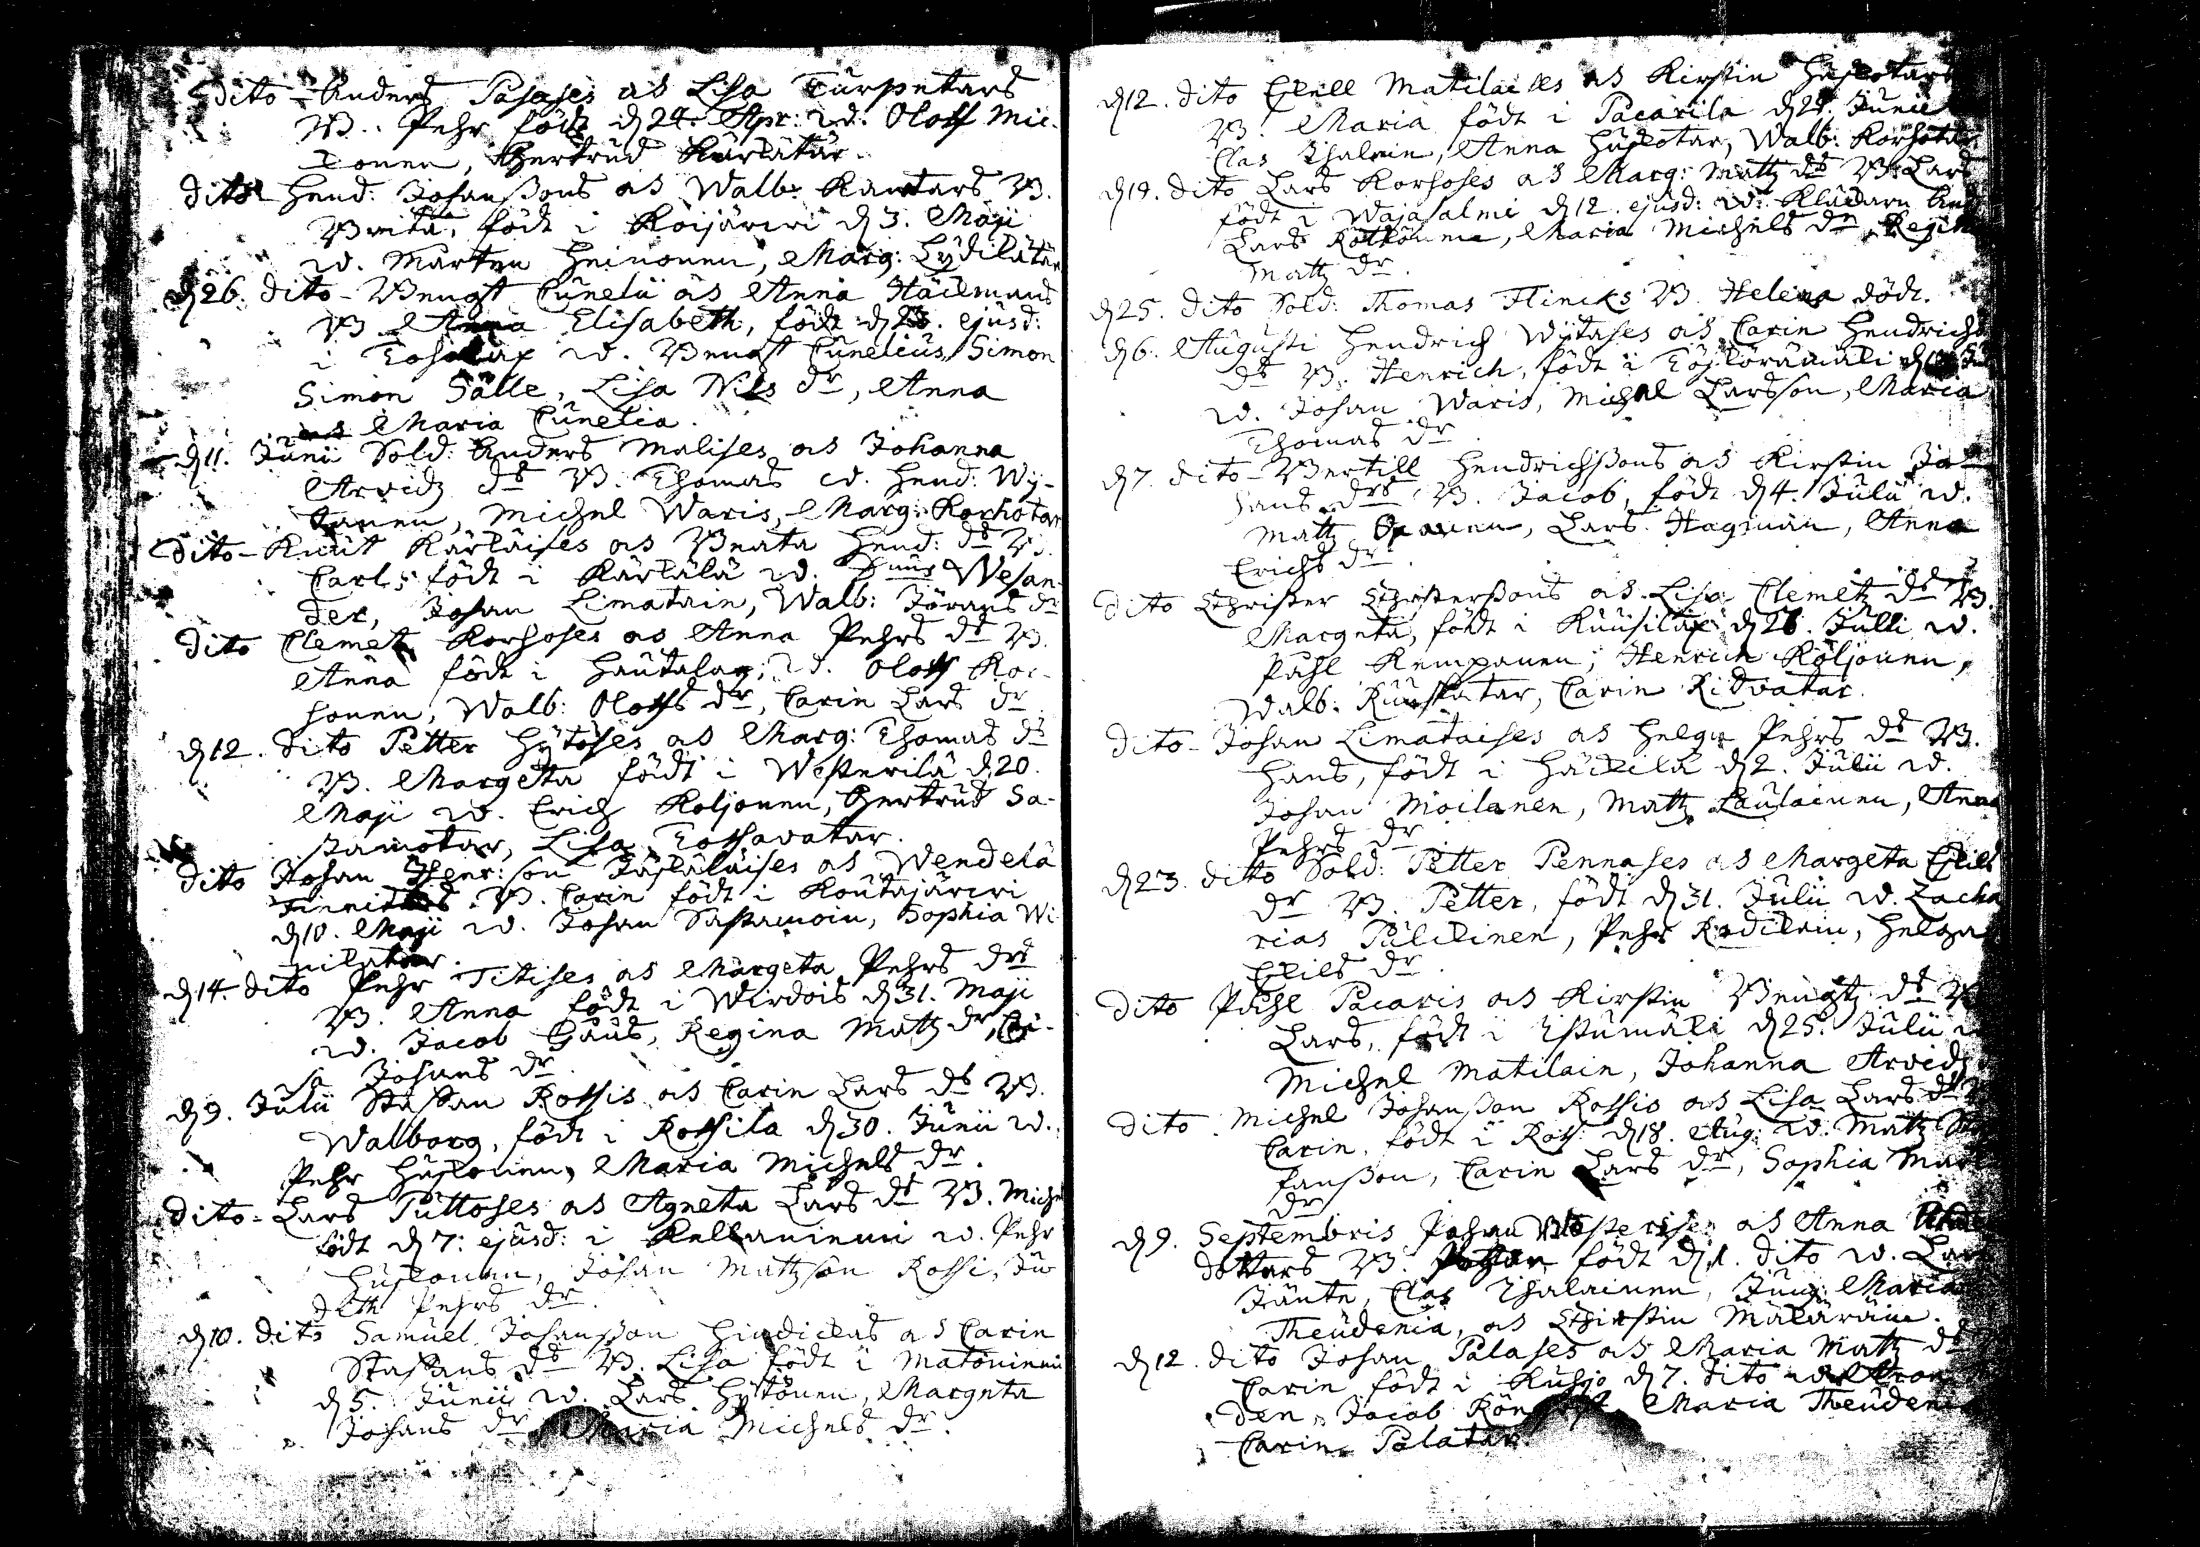 dito - Anders Pasases as Lisa Turpetars
B. Pehr född d 24 Apr: w. Oloff Mic-
konen, Gertrud Kärkätär.
dito Hend: Johanßons as Walb: Kantars B.
Brita, född i Koijärwi d 3. Maji
w. Mårten Heinonen, Marg: Lydikäta
d 26. dito - Bengt Cunelii as Anna Häckmans
B. Anna Elisabeth, född d 23. ejusd:
i w. Bengt Cunelius, Simon
Simon Sälle, Lisa Nils dr, Anna
Maria Cunelia.
d 11. Junii Sold: Anders Malises as Johanna
Arvidz ds B. Thomas w. Hend: Wy-
tanen, Michel Waris, Marg: Korhotar
dito - Knut Kärkäises as Beata Hend: ds B.
Carl, född i Kärkälä w. Wesan-
der, Johan Limatain, Walb: Jörans dr
dito Clemetz Korhoses as Anna Pehrs ds B.
Anna född i Hautalax; w. Oloff Kor-
honen, Walb: Oloffs dr, Carin Lars dr
d 12. dito Petter Hytöses as Marg: Thomas ds
B. Margeta född i Westerilä d 20.
Maji w. Erich Koljonen, Gertrud Sa-
stamotar, Lisa
dito Johan Henr:son Jäskäläises as Wendela
B. Carin född i Koutajärwi
d 10. Maji w. Johan Sastamoin, Sophia Wi-
d 14. dito Pehr Titises as Margeta Pehrs drs
B. Anna född i Wirdois d 31. Maji
w. Jacob Gaus, Regina Matz dr,
Johans dr
d 9. Julii Staffan Rossis as Carin Lars ds B.
Walborg, född i Rossila d 30. Junii w.
Pehr Huskonen, Maria Michels dr.
dito - Lars Puttoses as Agneta Lars ds B. Mich
född d 7: ejusd: i w. Pehr
Huskonen, Johan Mattzson Rossi, Ju
dith Pehrs dr.
d 10. dito Samuel Johanßon as Carin
Staffans ds B. Lisa född i Matoniemi
d 5. Junii w. Lars Hytönen, Margeta
Johans dr Maria Michels dr.
d 12. dito Eskill Matilaises as Kirstin Huskotars
B. Maria född i Pacarila d 24. Junii
Clas Ihalain, Anna Huskotar, Walb: Korhotar
d 19. dito Lars Korhoses as Marg: Matz ds B. Lars
född i Wajasalmi d 12 ejusd: w.
Lars Maria Michels dr,
Matz dr.
d 25. dito Sold: Thomas Flincks B. Helena född.
d 6. Augusti Hendrich Wytases as Carin Hendrichs
ds B. Henrich, född i
w. Johan Waris, Michel Larsson, Maria
Thomas dr
d 7. dito - Bertill Hendrichßons as Kirstin Jo-
hans drs B. Jacob, född d 4. Julii w.
Matz Lars Hagman, Anna
Erichs dr.
dito Christer Christerßons as Lisa Clemetz ds B.
Margeta, född i Kuusilax d 26. Julii w.
Påhl Kempanen; Henrich Koljonen,
Walb: Carin
dito - Johan Limataises as Helga Pehrs ds B.
Hans, född i Häckilä d 2. Julii w.
Johan Moilanen, Matz Laulainen, Anna
Pehrs dr
d 23. dito Sold: Petter Pennases as Margeta Eskils
dr B. Petter, född d 31. Julii w. Zacha
rias Pulckinen, Pehr Helga
Eskils dr
dito Påhl Pacaris as Kirstin Bengtz ds B
Lars, född i Istumäki d 25. Julii w
Michel Matilain, Johanna Arvidz
dito Michel Johanßon Rossis as Lisa Lars ds
Carin, född i Ross: d 18. Aug: w. Matz
fanßon, Carin Lars dr, Sophia
dr
d 9. Septembris Johan as Anna
dotters B. född d 1. dito w. Lars
Jänte, Clas Ihalainen, Jung: Maria
Theudenia, as Christin
d 12. dito Johan Palases as Maria Matz ds
Carin född i Kuhjo d 7. dito
den, Jacob Maria Theudenia
Carin Palatar.